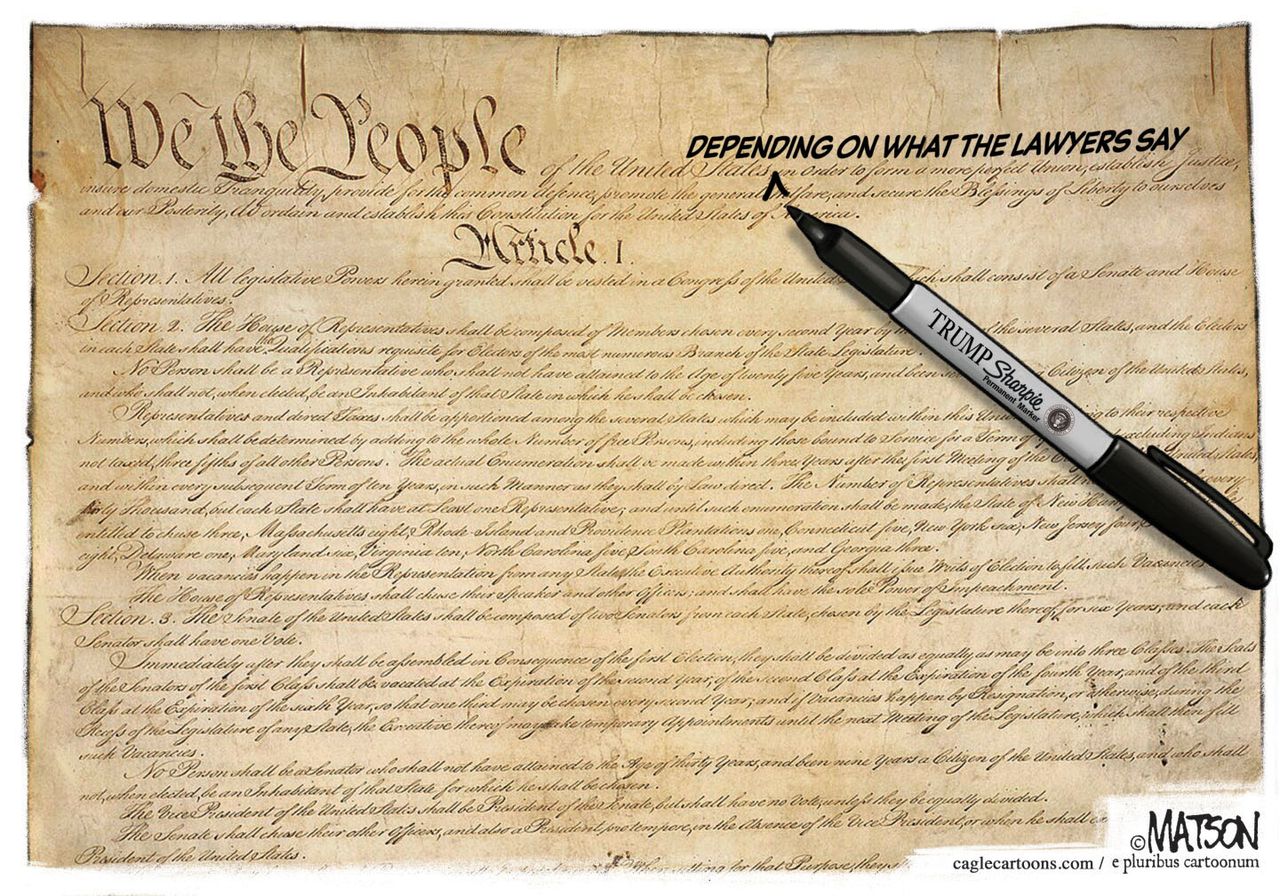 DEPENDING ON WHAT THE LAWYERS SAY
We the People of the United States, in Order to form a more perfect Union, establish Justice,
insure domestic Tranquility, provide for the common defence, promote the general Welfare, and secure the Blessings of Liberty to ourselves
and our Posterity, do ordain and establish this Constitution for the United States of America.
Article I.
Section. 1. All legislative Powers herein granted shall be vested in a Congress of the United shall consist of a Senate and House
of Representatives.
Section. 2. The House of Representatives shall be composed of Members chosen every second Year by the several States, and the Electors
in each State shall have Qualifications requisite for Electors of the most numerous Branch of the State Legislature.
No Person shall be a Representative who shall not have attained to the Age of twenty five Years, and been Citizen of the United States,
and who shall not, when elected, be an Inhabitant of that State in which he shall be chosen.
Representatives and direct Taxes shall be apportioned among the several States which may be included within this to their respective
Numbers, which shall be determined by adding to the whole Number of free Persons, including those bound to Service for a Term of excluding Indians
not taxed, three fifths of all other Persons. The actual Enumeration shall be made within three Years after the first Meeting of the United States,
and within every subsequent Term of ten Years, in such Manner as they shall by Law direct. The Number of Representatives shall every
thirty Thousand, but each State shall have at Least one Representative; and until such enumeration shall be made, the State of New
entitled to chuse three, Massachusetts eight, Rhode-Island and Providence Plantations one, Connecticut five, New-York six, New Jersey four,
eight, Delaware one, Maryland six, Virginia ten, North Carolina five, South Carolina five, and Georgia three.
When vacancies happen in the Representation from any State, the Executive Authority thereof shall issue Writs of Election to fill such Vacancies
The House of Representatives shall chuse their Speaker and other Officers; and shall have the sole Power of Impeachment.
Section. 3. The Senate of the United States shall be composed of two Senators from each State, chosen by the Legislature thereof, for six Years; and each
Senator shall have one Vote.
Immediately after they shall be assembled in Consequence of the first Election, they shall be divided as equally as may be into three Classes. The Seats
of the Senators of the first Class shall be vacated at the Expiration of the second Year, of the second Class at the Expiration of the fourth Year, and of the third
Class at the Expiration of the sixth Year, so that one third may be chosen every second Year; and if Vacancies happen by Resignation, or otherwise, during the
Recess of the Legislature of any State, the Executive thereof may make temporary Appointments until the next Meeting of the Legislature, which shall then fill
such Vacancies.
No Person shall be a Senator who shall not have attained to the Age of thirty Years, and been nine Years a Citizen of the United States, and who shall
not, when elected, be an Inhabitant of that State for which he shall be chosen.
The Vice President of the United States shall be President of the Senate, but shall have no Vote, unless they be equally divided.
The Senate shall chuse their other Officers, and also a President pro tempore, in the Absence of the Vice President, or when he shall
President of the United States.
for that Purpose, they
TRUMP
Sharpie
Permanent Marker
© MATSON
caglecartoons.com / e pluribus cartoonum